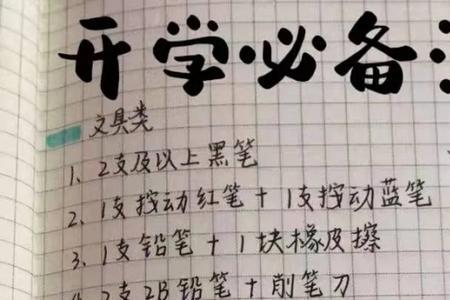 开学必备
文具类
1、2支及以上黑笔
2、1支按动红笔+1支按动蓝笔
3、1支铅笔+1块橡皮擦
2支2B铅笔+削笔刀